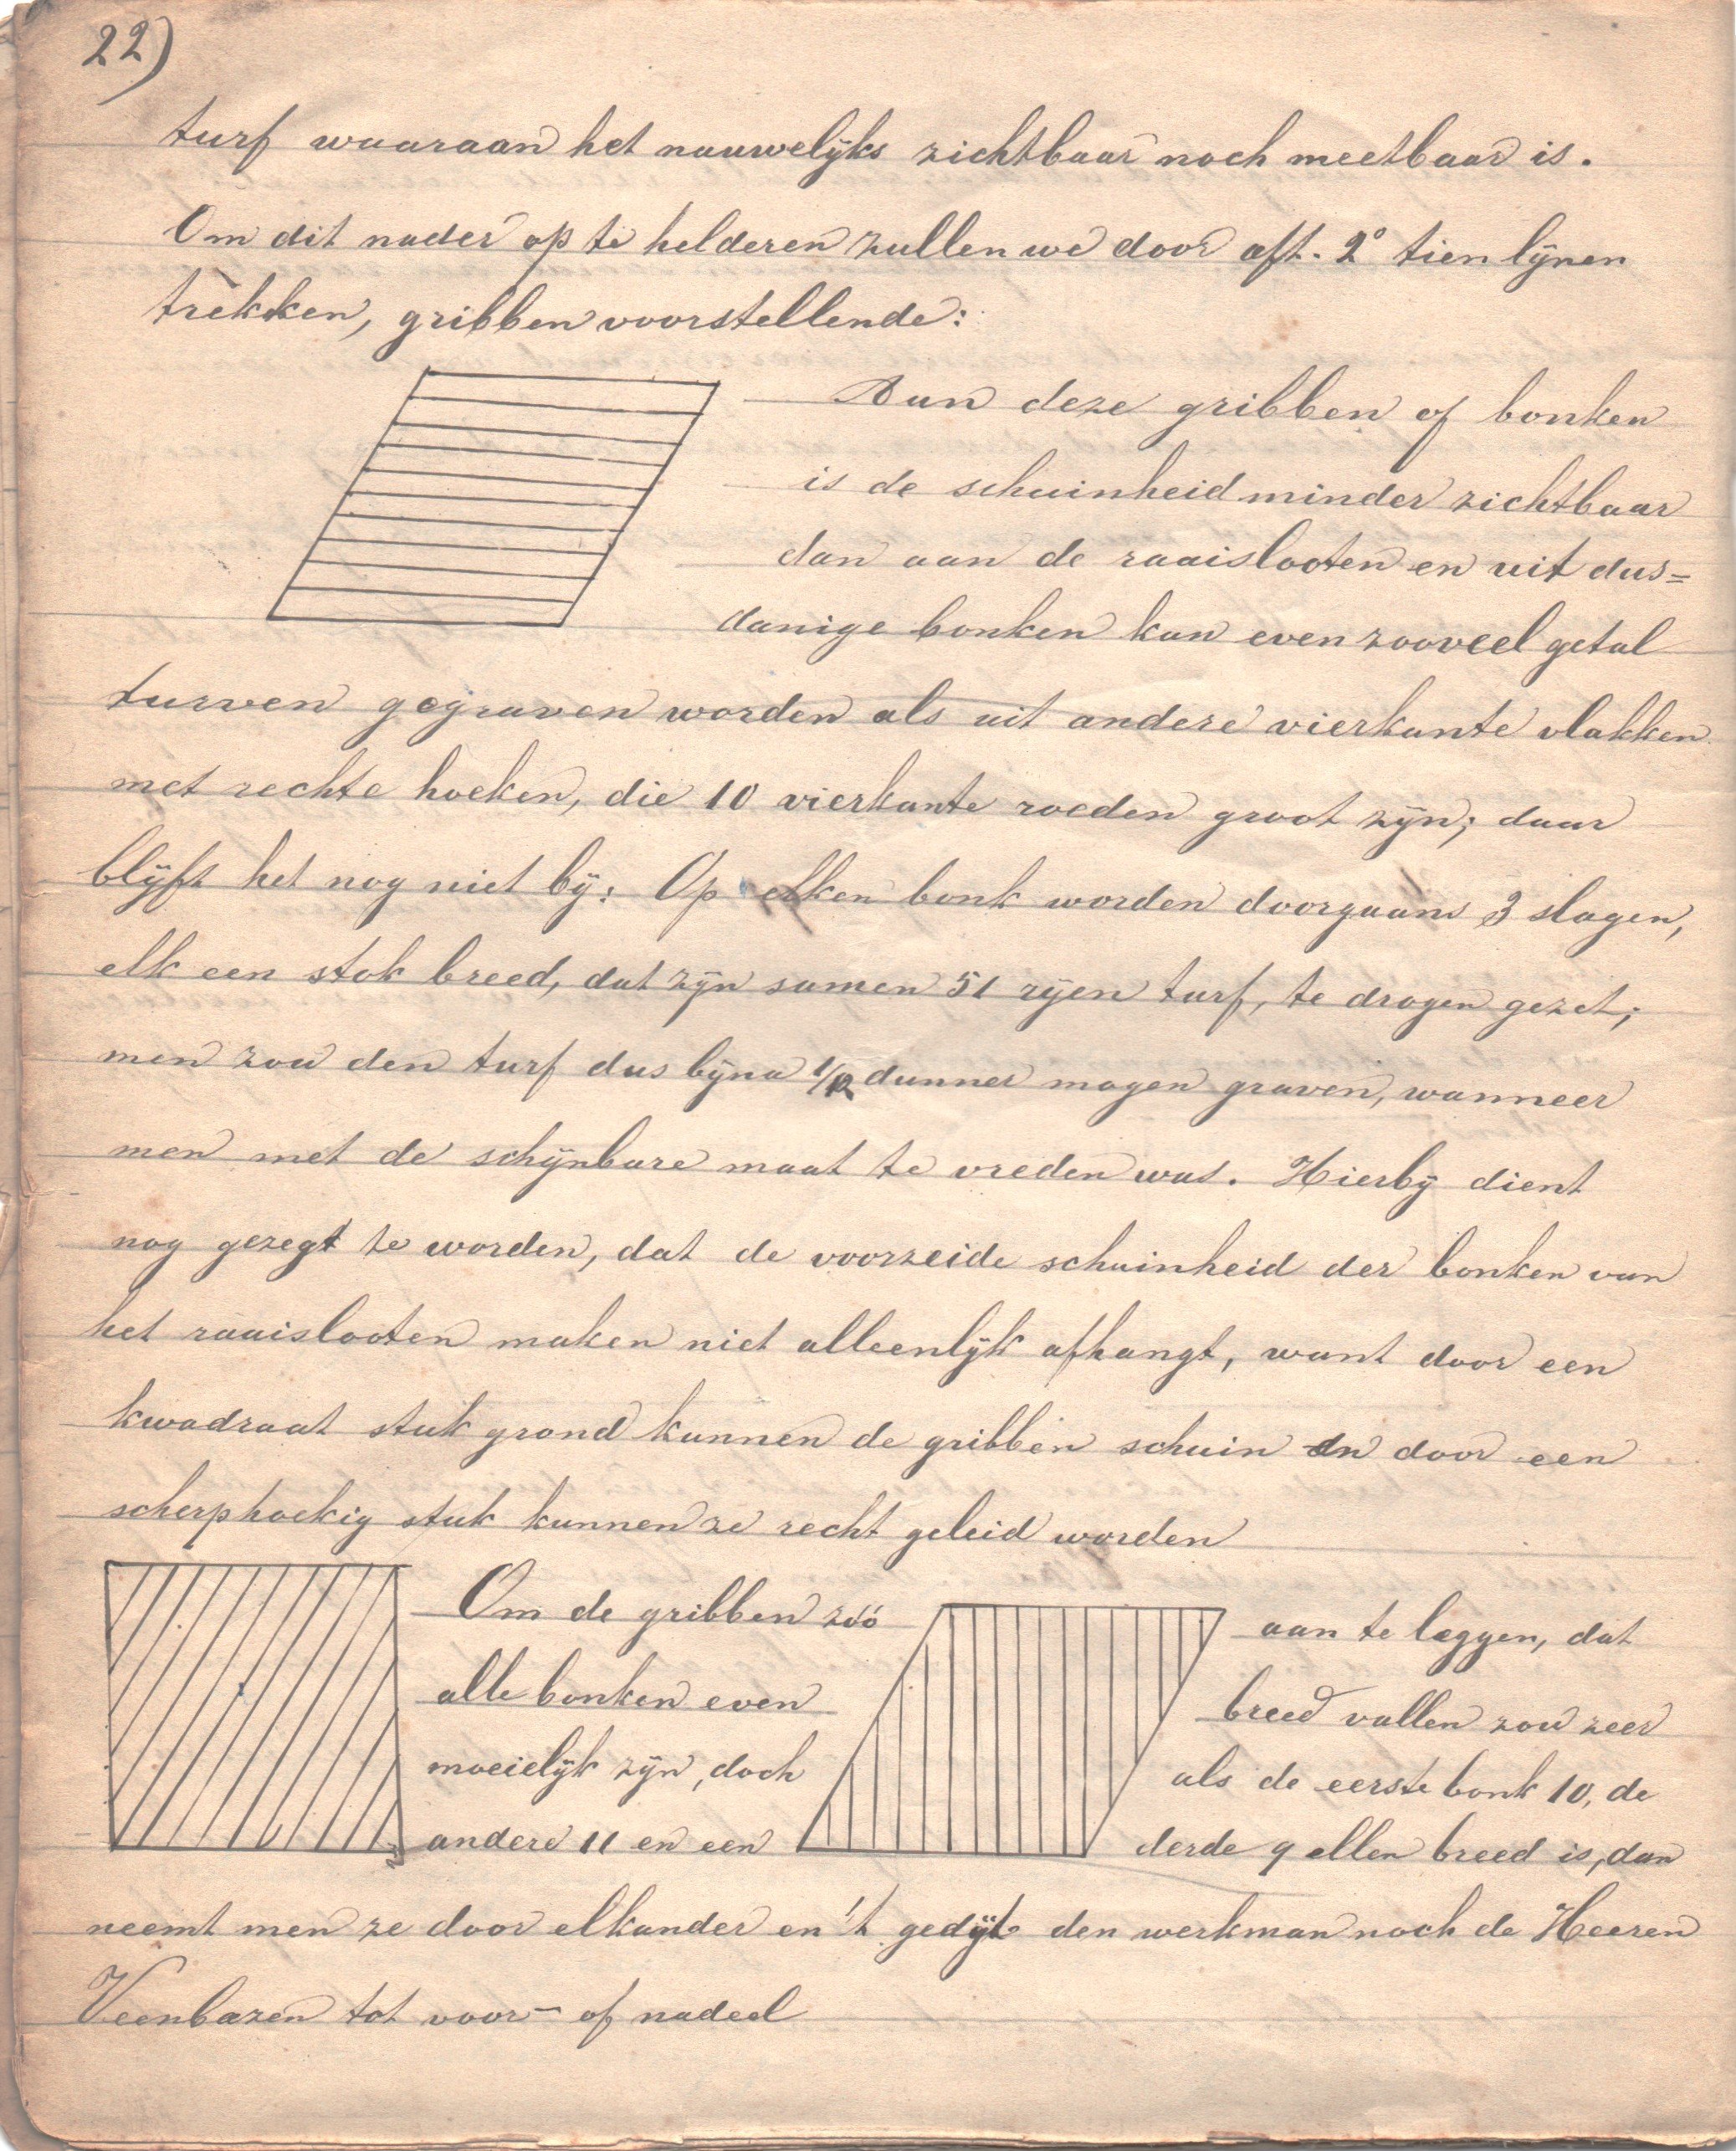 22)
turf waaraan het nauwelijks zichtbaar noch meetbaar is.
Om dit nader op te helderen zullen we door aft. 2° tien lijnen
trekken, gribben voorstellende:
Aan deze gribben of bonken
is de schuinheid minder zichtbaar
dan aan de raaislooten en uit dus=
danige bonken kan even zooveel getal
turven gegraven worden als uit andere vierkante vlakken
met rechte hoeken, die 10 vierkante roeden groot zijn; daar
blijft het nog niet bij: Op elken bonk worden doorgaans 3 slagen,
elk een stok breed, dat zijn samen 51 rijen turf, te drogen gezet;
men zou den turf dus bijna 1/12 dunner mogen graven, wanneer
men met de schijnbare maat te vreden was. Hierbij dient
nog gezegt te worden, dat de voorzeide schuinheid der bonken van
het raaislooten maken niet alleenlijk afhangt, want door een
kwadraat stuk grond kunnen de gribben schuin en door een
scherphoekig stuk kunnen ze recht geleid worden
Om de gribben zóó aan te leggen, dat
alle bonken even breed vallen zou zeer
moeielijk zijn, doch als de eerste bonk 10, de
andere 11 en een derde 9 ellen breed is, dan
neemt men ze door elkander en 't gedijt den werkman noch de Heeren
Veenbazen tot voor- of nadeel